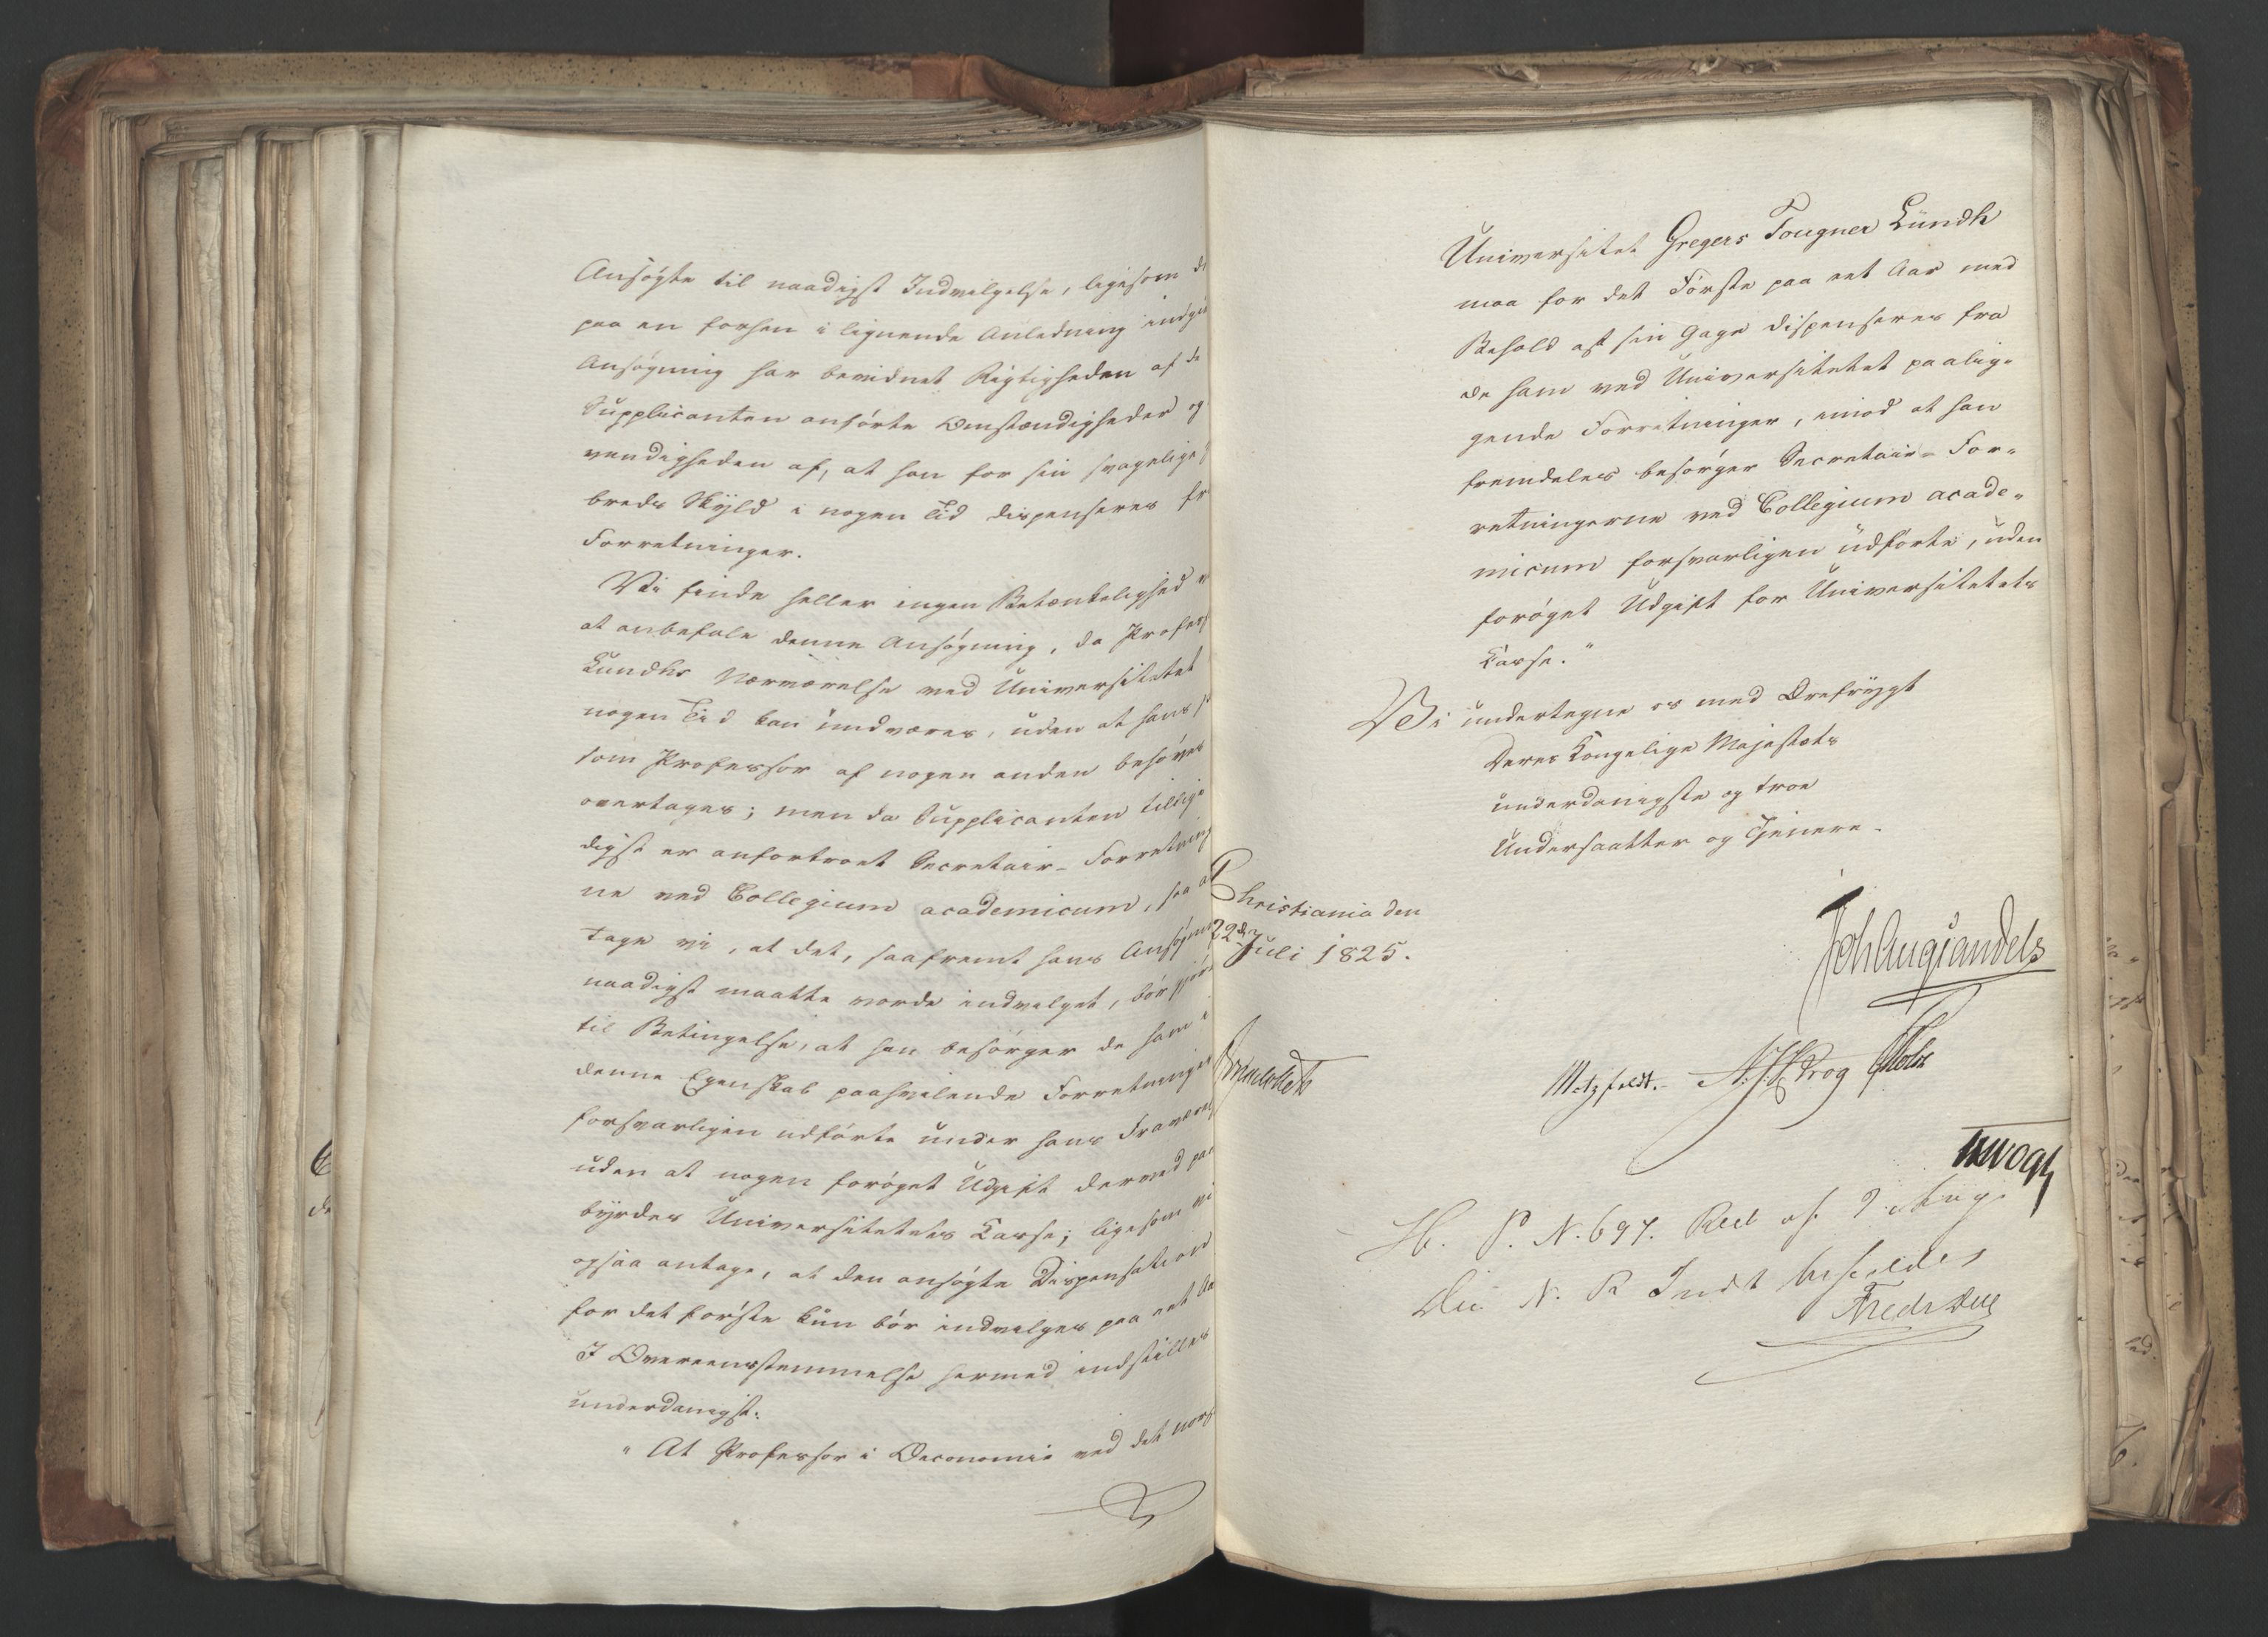 Ansøgte til naadigst Indvilgelse, ligesom d
paa en forhen i lignende Anledning indgi
Ansøgning har bevidnet Rigtigheden af de
Supplicanten anførte Omstændigheder og
vendigheden af, at han for sin svagelige
breds Skyld i nogen Tid dispenseres fr
Forretninger.
Vi finde heller ingen Betænkelighed v
at anbefale denne Ansøgning, da Profess
Lundhs Nærværelse ved Universitetet
nogen Tid kan undværes, uden at hans
som Professor af nogen anden behøves
overtages; men da Supplicanten tillige
digst er anfortroet Secretair-Forretning
ne ved Collegium academicum, saa an
tage vi, at det, saafremt hans Ansøgni
naadigst maatte vorde indvilget, bør gjøre
til Betingelse, at han besørger de ham i
denne Egenskab paahvilende Forretninger
forsvarligen udførte under hans Fraværel
uden at nogen forøget Udgift derved paa
byrdes Universitetets Casse; ligesom vi
ogsaa antage, at den ansøgte Dispensation
for det første kun bør indvilges paa eet Aa
I Overeensstemmelse hermed indstilles
underdanigst:
"At Professor i Oeconomie ved det nors
Universitet Gregers Fougner Lundh
maa for det Første paa eet Aar med
Behold af sin Gage dispenseres fra
de ham ved Universitetet paalig-
gende Forretninger, imod at han
fremdeles besørger Secretair-For-
retningerne ved Collegium acade-
micum forsvarligen udførte, uden
forøget Udgift for Universitetets
Casse."
Vi undertegne os med Ærefrygt
Deres Kongelige Majestæts
underdanigste og troe
Undersaatter og Tjenere.
Christiania den
22de Juli 1825.
Joh Aug Sandels
Motzfeldt. N. J. Krog Holst
Diriks
JHVogt
H. P. N. 697. Res af 9 Aug.
Die N. R. Indt bifaldes
Fredr Due